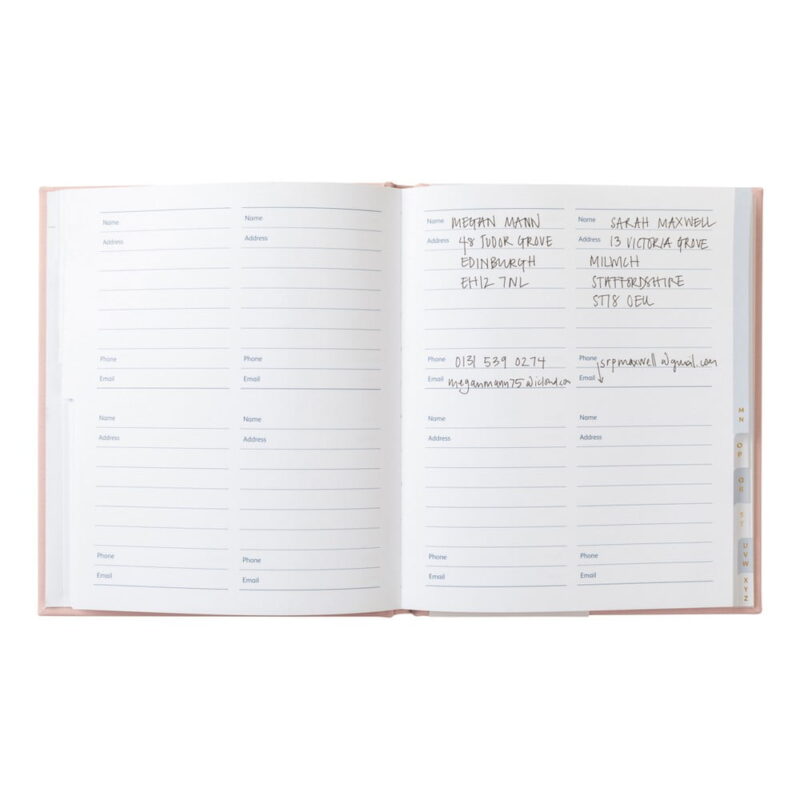 Name
Address
Phone
Email
Name
Address
Phone
Email
Name
Address
Phone
Email
Name
Address
Phone
Email
Name MEGAN MANN
Address 48 TUDOR GROVE
EDINBURGH
EH12 7NL
Phone 0131 539 0274
Email meganmann75@icloud.com
Name SARAH MAXWELL
Address 13 VICTORIA GROVE
MILWICH
STAFFORDSHIRE
ST18 0EU
Phone srpmaxwell@gmail.com
Email
Name
Address
Phone
Email
Name
Address
Phone
Email
M
N
O
P
Q
R
S
T
U
V
W
X
Y
Z